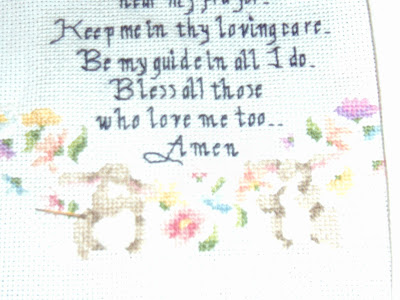 hear my prayer.
Keep me in thy loving care.
Be my guide in all I do.
Bless all those
who love me too..
Amen